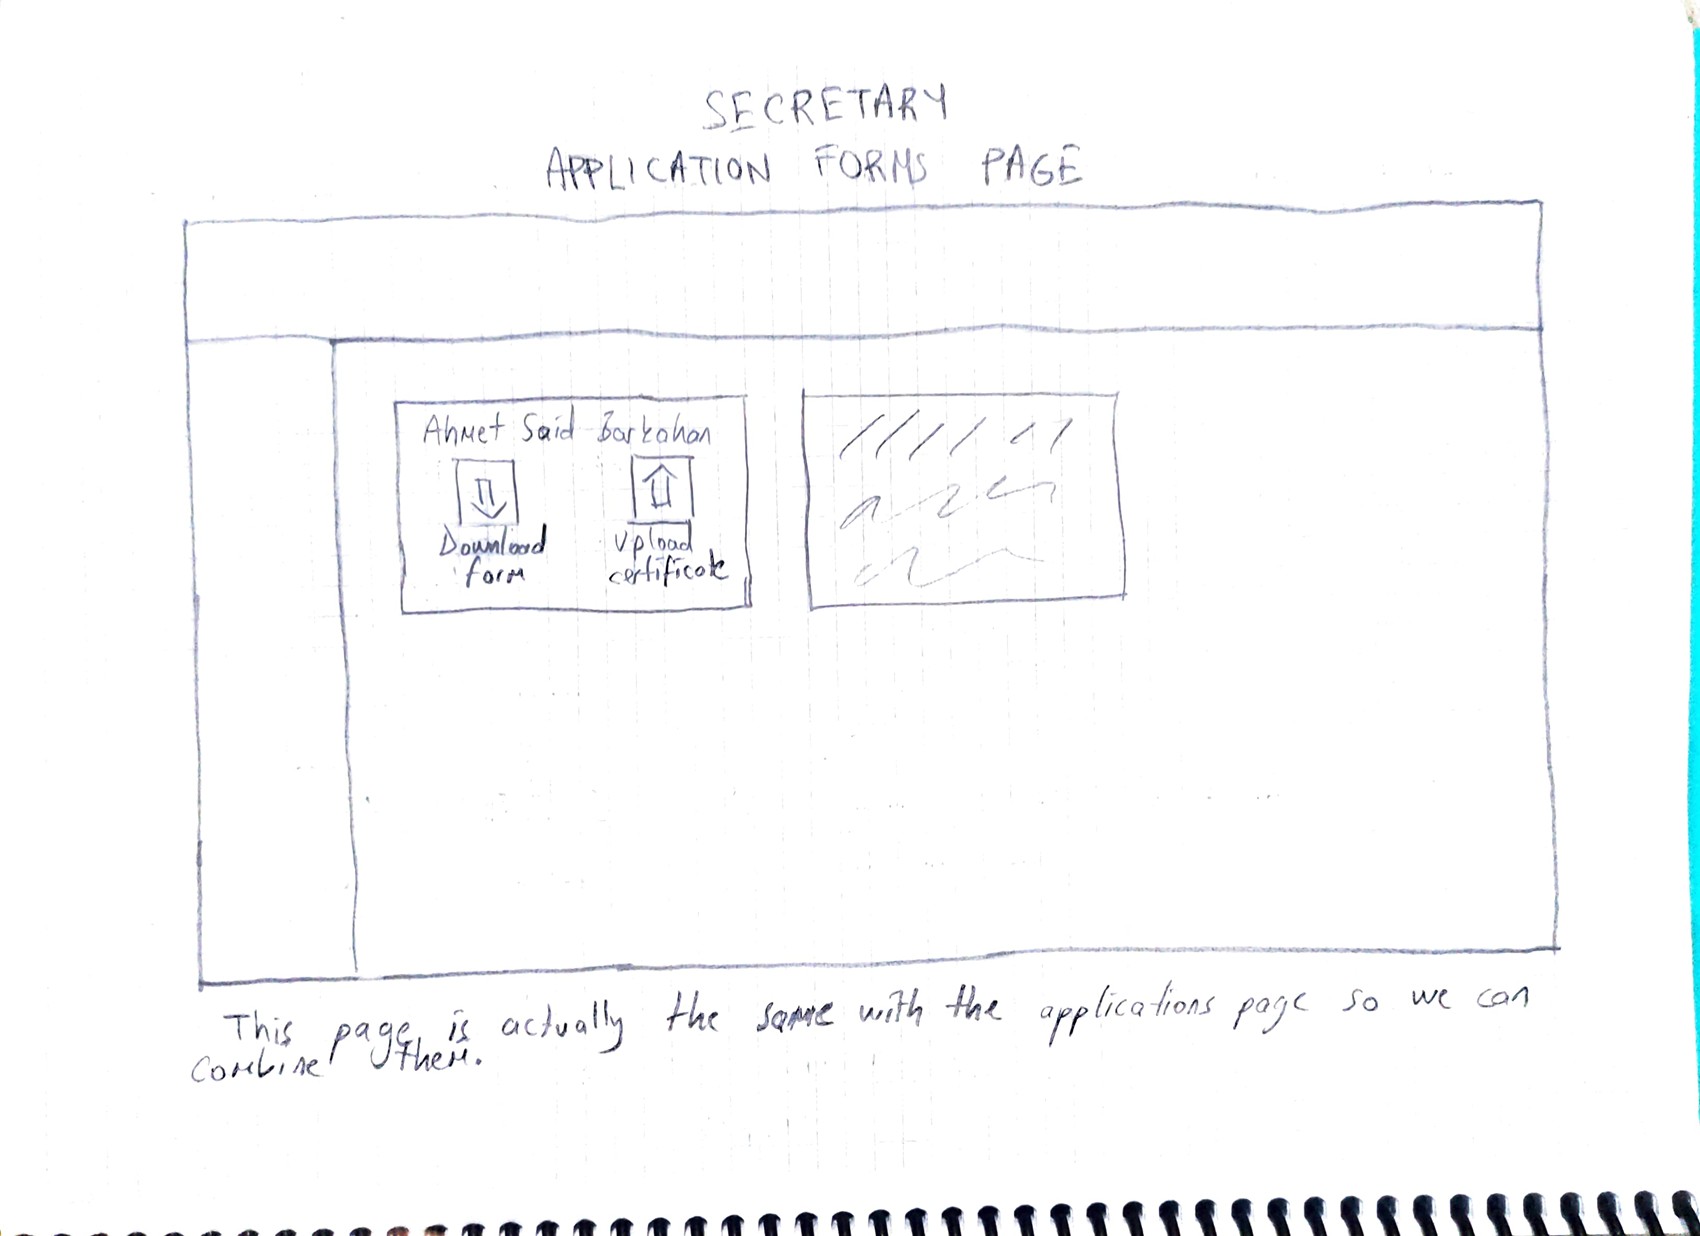 SECRETARY
APPLICATION FORMS PAGE
Ahmet Said Barkahan
Download
form
Upload
certificate
This page is actually the same with the applications page so we can
combine them.